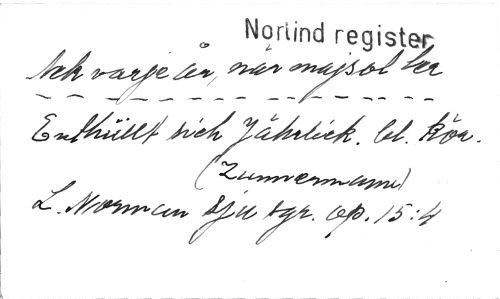 Norlind register
Och varje år, när majsol ler
Enthüllt sich jährlich. bl. kör.
(Zimmermann)
L. Norman Sju sgr. op. 15:4